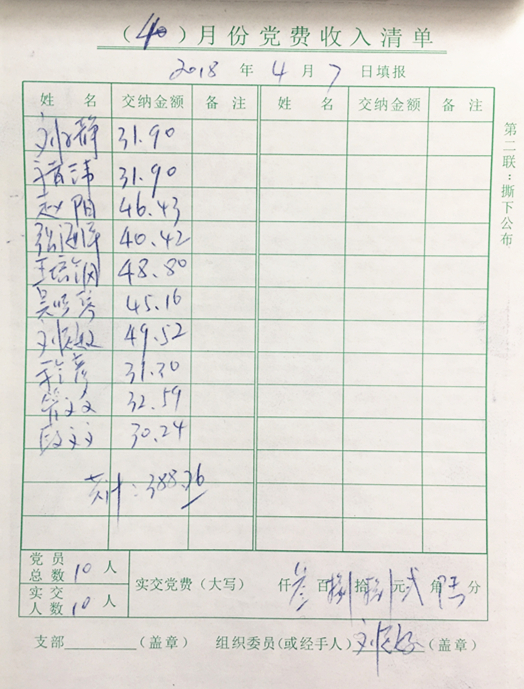 (4)月份党费收入清单
2018 年 4 月 7 日填报
姓 名 交纳金额 备 注 姓 名 交纳金额 备 注
刘静 31.90
31.90
赵阳 46.43
张海洋 40.42
王培钢 48.80
吴晓琴 45.16
刘 49.52
彦 31.30
曾文文 32.59
段文文 30.24
共计:388.26
党员总数 10 人
实交人数 10 人
实交党费(大写) 仟 叁 百 捌 拾 捌 元 贰 角 陆 分
支部 (盖章) 组织委员(或经手人) 刘 (盖章)
第二联:撕下公布